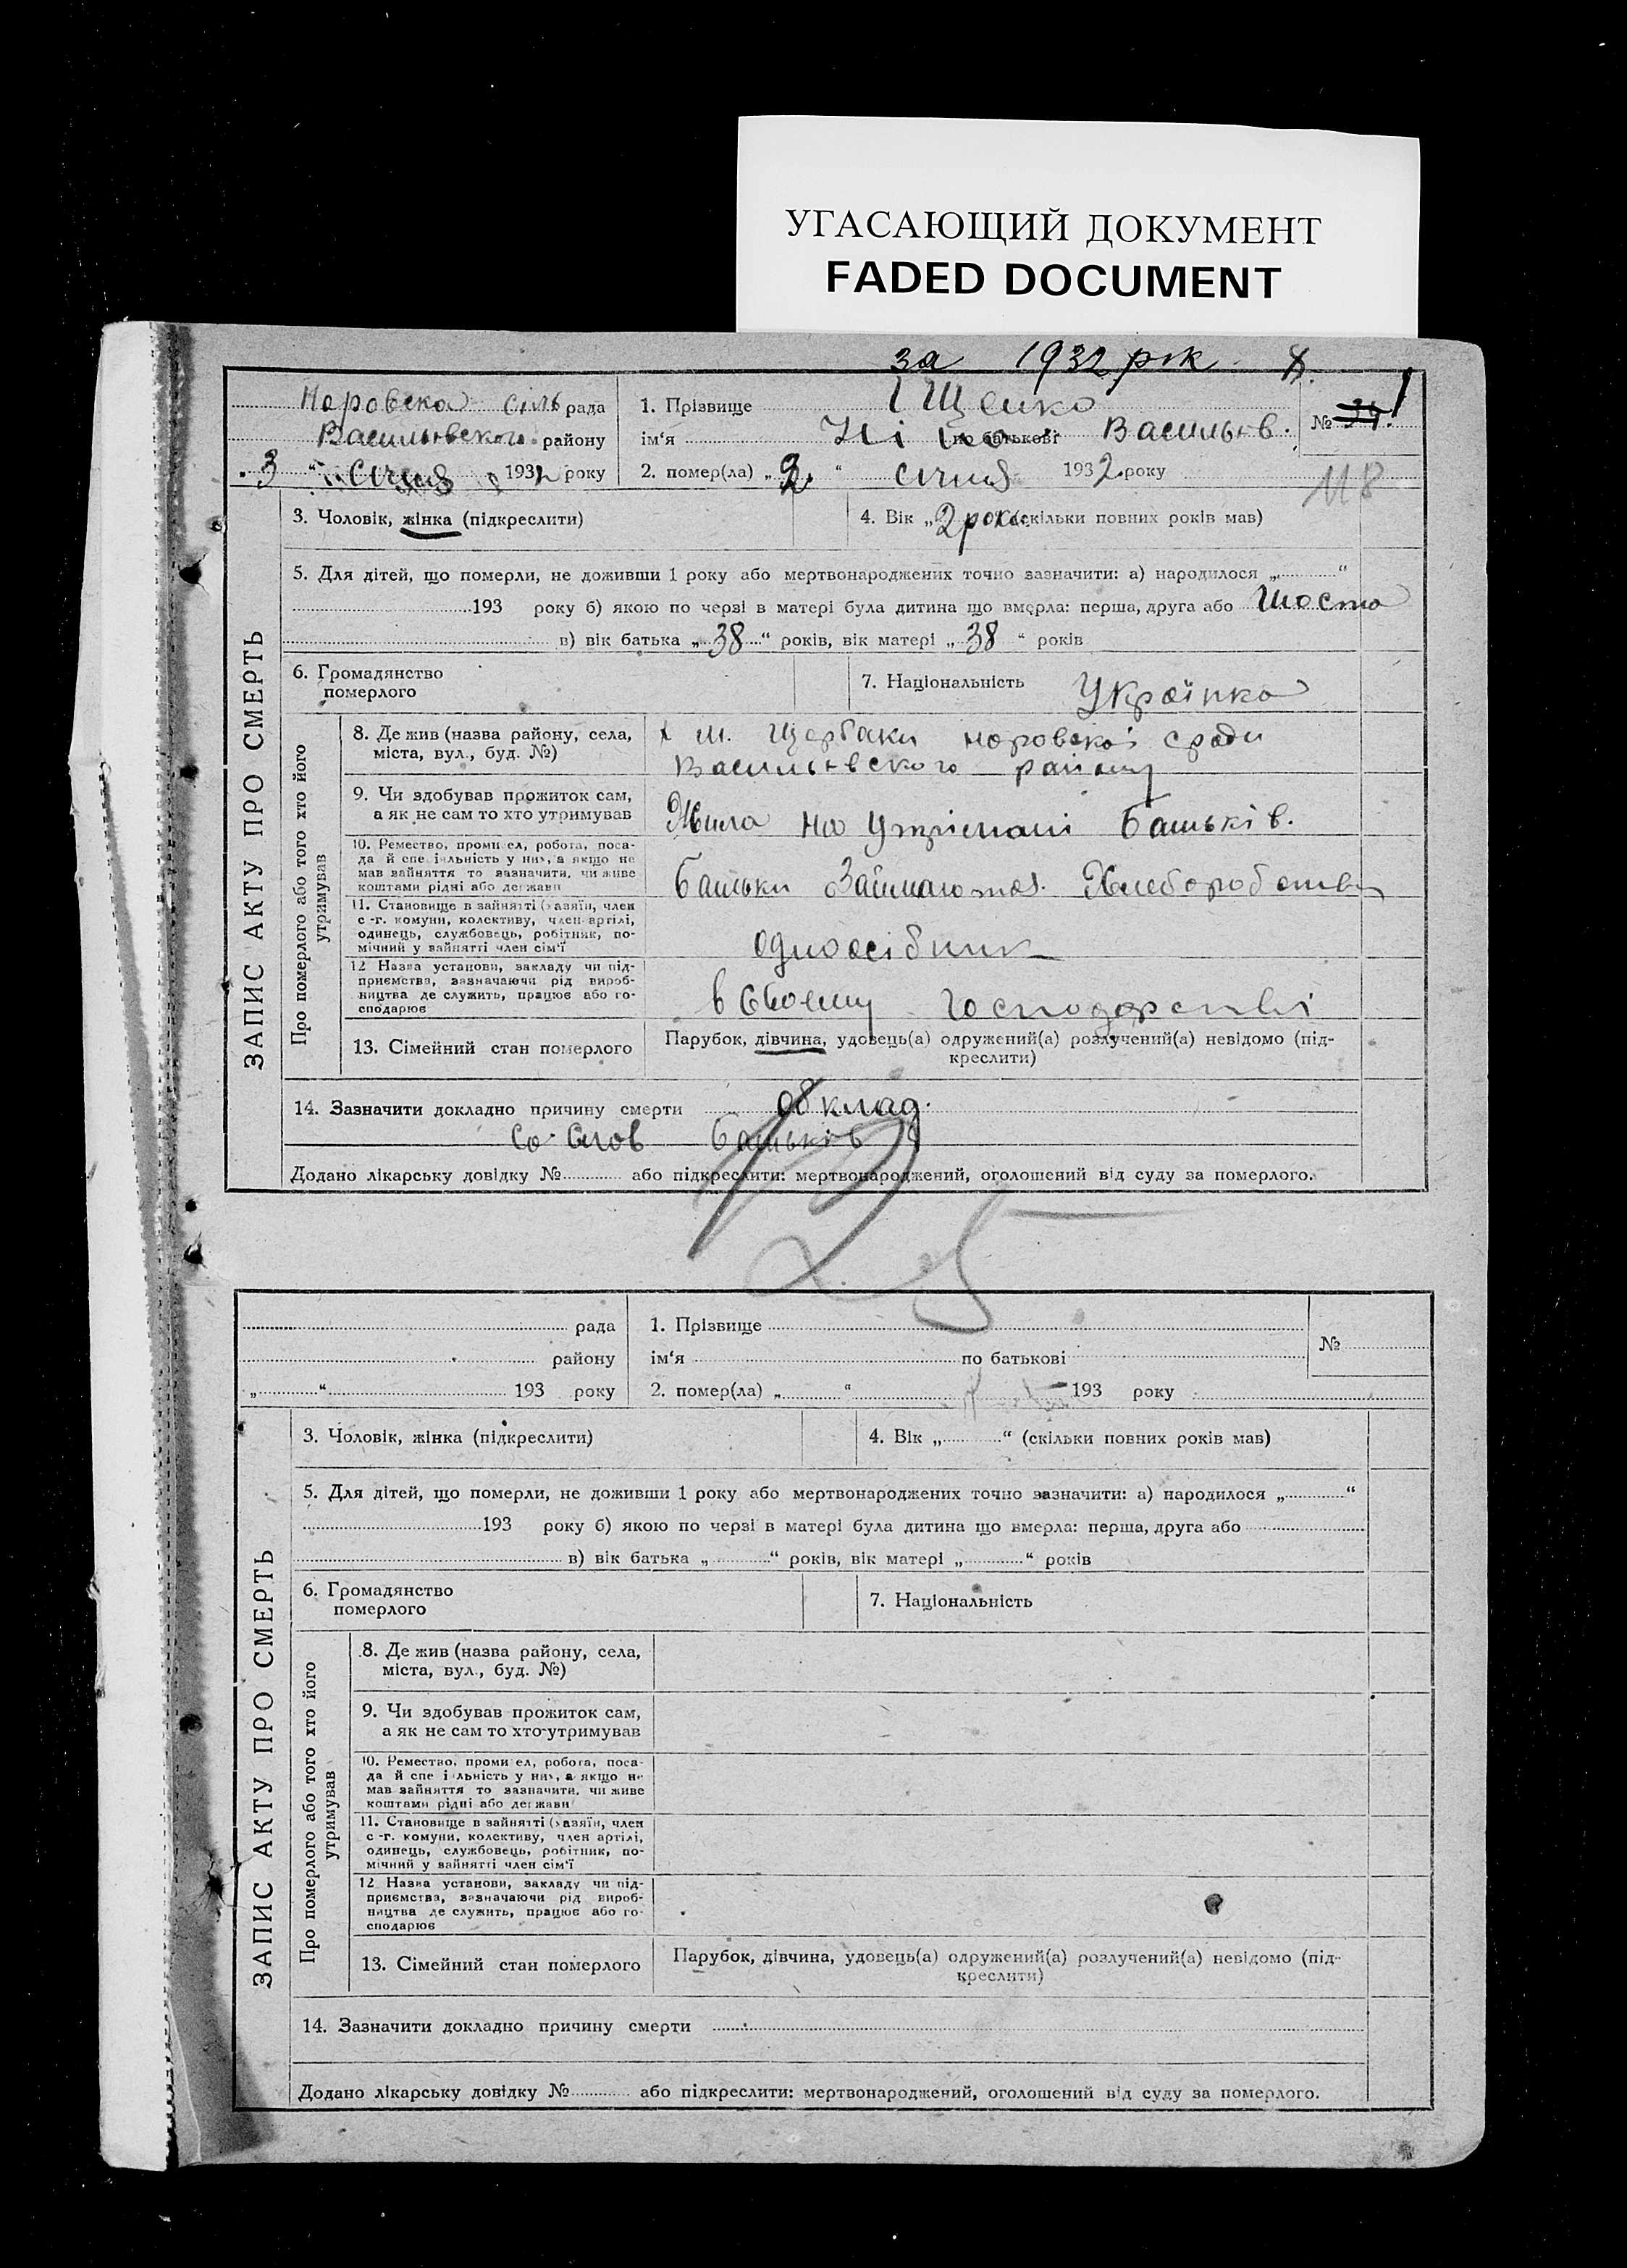 УГАСАЮЩИЙ ДОКУМЕНТ
FADED DOCUMENT
за 1932 рік
Норовска сіль рада
Васильвского району
„3“ Січня 1932 року
1. Прізвище Іщенко
ім‘я Ніна по батькові Васильів.
№ 34. 1
2. помер(ла) „2“ січня 1932 року
118
3. Чоловік, жінка (підкреслити)
4. Вік „2 роки скільки повних років мав)
5. Для дітей, що померли, не доживши 1 року або мертвонароджених точно зазначити: а) народилося „ “
193 року б) якою по черзі в матері була дитина що вмерла: перша, друга або шоста
в) вік батька „38“ років, вік матері „38“ років
6. Громадянство
померлого
7. Національність Українка
ЗАПИС АКТУ ПРО СМЕРТЬ
Про померлого або того хто його
утримував
8. Де жив (назва району, села,
міста, вул., буд. №)
Щербаки норовскоі сради
Васильівского району
9. Чи здобував прожиток сам,
а як не сам то хто утримував
Жила на утрімані батьків.
10. Ремество, промисел, робота, поса-
да й спеціальність у них, а якщо не
мав зайняття то зазначити, чи живе
коштами рідні або держави
батьки Займаются. Хлеборобством
11. Становище в зайнятті (хазяїн, член
с.-г. комуни, колективу, член артілі,
одинець, службовець, робітник, по-
мічний у зайнятті член сім‘ї
одноосібник
12 Назва установи, закладу чи під-
приємства, зазначаючи рід вироб-
ництва де служить, працює або го-
сподарює
в своему господарстві
13. Сімейний стан померлого
Парубок, дівчина, удовець(а) одружений(а) розлучений(а) невідомо (під-
креслити)
14. Зазначити докладно причину смерти обклад.
Со слов батьків
Додано лікарську довідку № або підкреслити: мертвонароджений, оголошений від суду за померлого.
рада
району
„ “ 193 року
1. Прізвище
ім‘я по батькові
№
2. помер(ла) „ “ 193 року
3. Чоловік, жінка (підкреслити)
4. Вік „ “ (скільки повних років мав)
5. Для дітей, що померли, не доживши 1 року або мертвонароджених точно зазначити: а) народилося „ “
193 року б) якою по черзі в матері була дитина що вмерла: перша, друга або
в) вік батька „ “ років, вік матері „ “ років
6. Громадянство
померлого
7. Національність
ЗАПИС АКТУ ПРО СМЕРТЬ
Про померлого або того хто його
утримував
8. Де жив (назва району, села,
міста, вул., буд. №)
9. Чи здобував прожиток сам,
а як не сам то хто утримував
10. Ремество, промисел, робота, поса-
да й спеціальність у них, а якщо не
мав зайняття то зазначити, чи живе
коштами рідні або держави
11. Становище в зайнятті (хазяїн, член
с.-г. комуни, колективу, член артілі,
одинець, службовець, робітник, по-
мічний у зайнятті член сім‘ї
12 Назва установи, закладу чи під-
приємства, зазначаючи рід вироб-
ництва де служить, працює або го-
сподарює
13. Сімейний стан померлого
Парубок, дівчина, удовець(а) одружений(а) розлучений(а) невідомо (під-
креслити)
14. Зазначити докладно причину смерти
Додано лікарську довідку № або підкреслити: мертвонароджений, оголошений від суду за померлого.